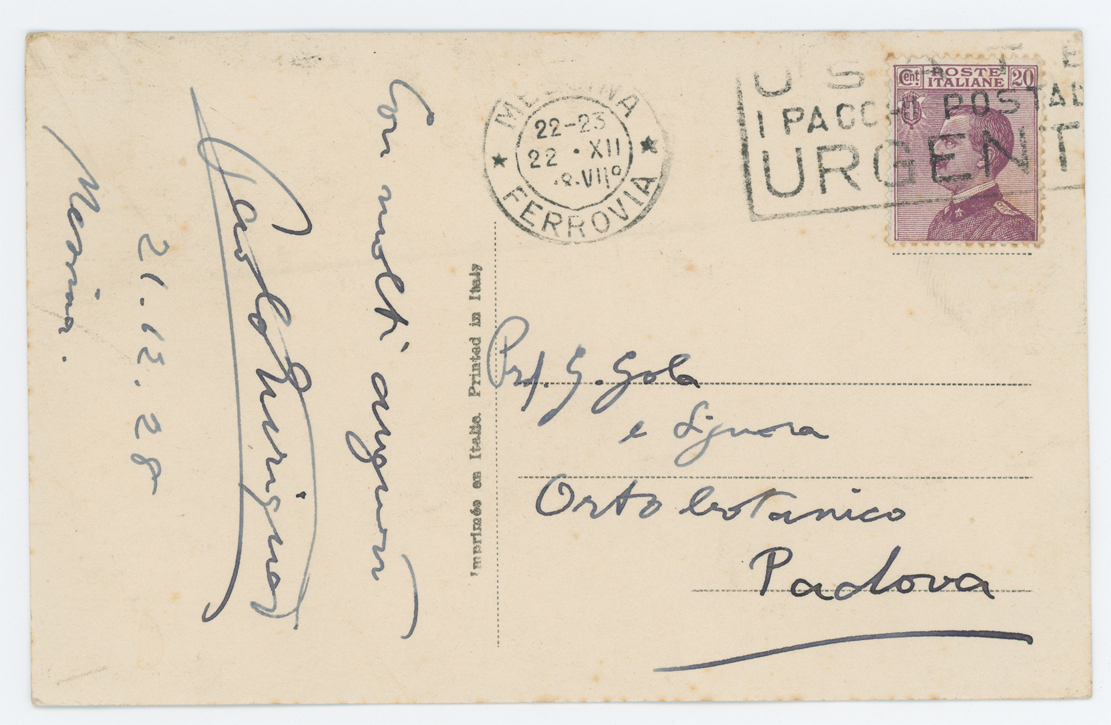 Messina.
21.12.28
Con molti auguri
Imprimée en Italie. Printed in Italy
MESSINA
22-23
22 • XII
VIIº
FERROVIA
USATE
I PACCHI POSTAL
URGENT
Cent POSTE ITALIANE 20
Prof. G. Gola
e Signora
Orto botanico
Padova